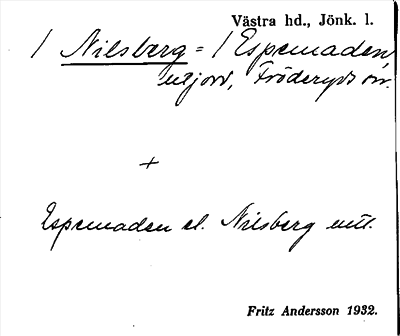 Västra hd., Jönk. l.
/ Nilsberg = / Espemaden,
utjord, Fröderyds sn.
+
Espemaden el. Nilsberg utt.
Fritz Andersson 1932.